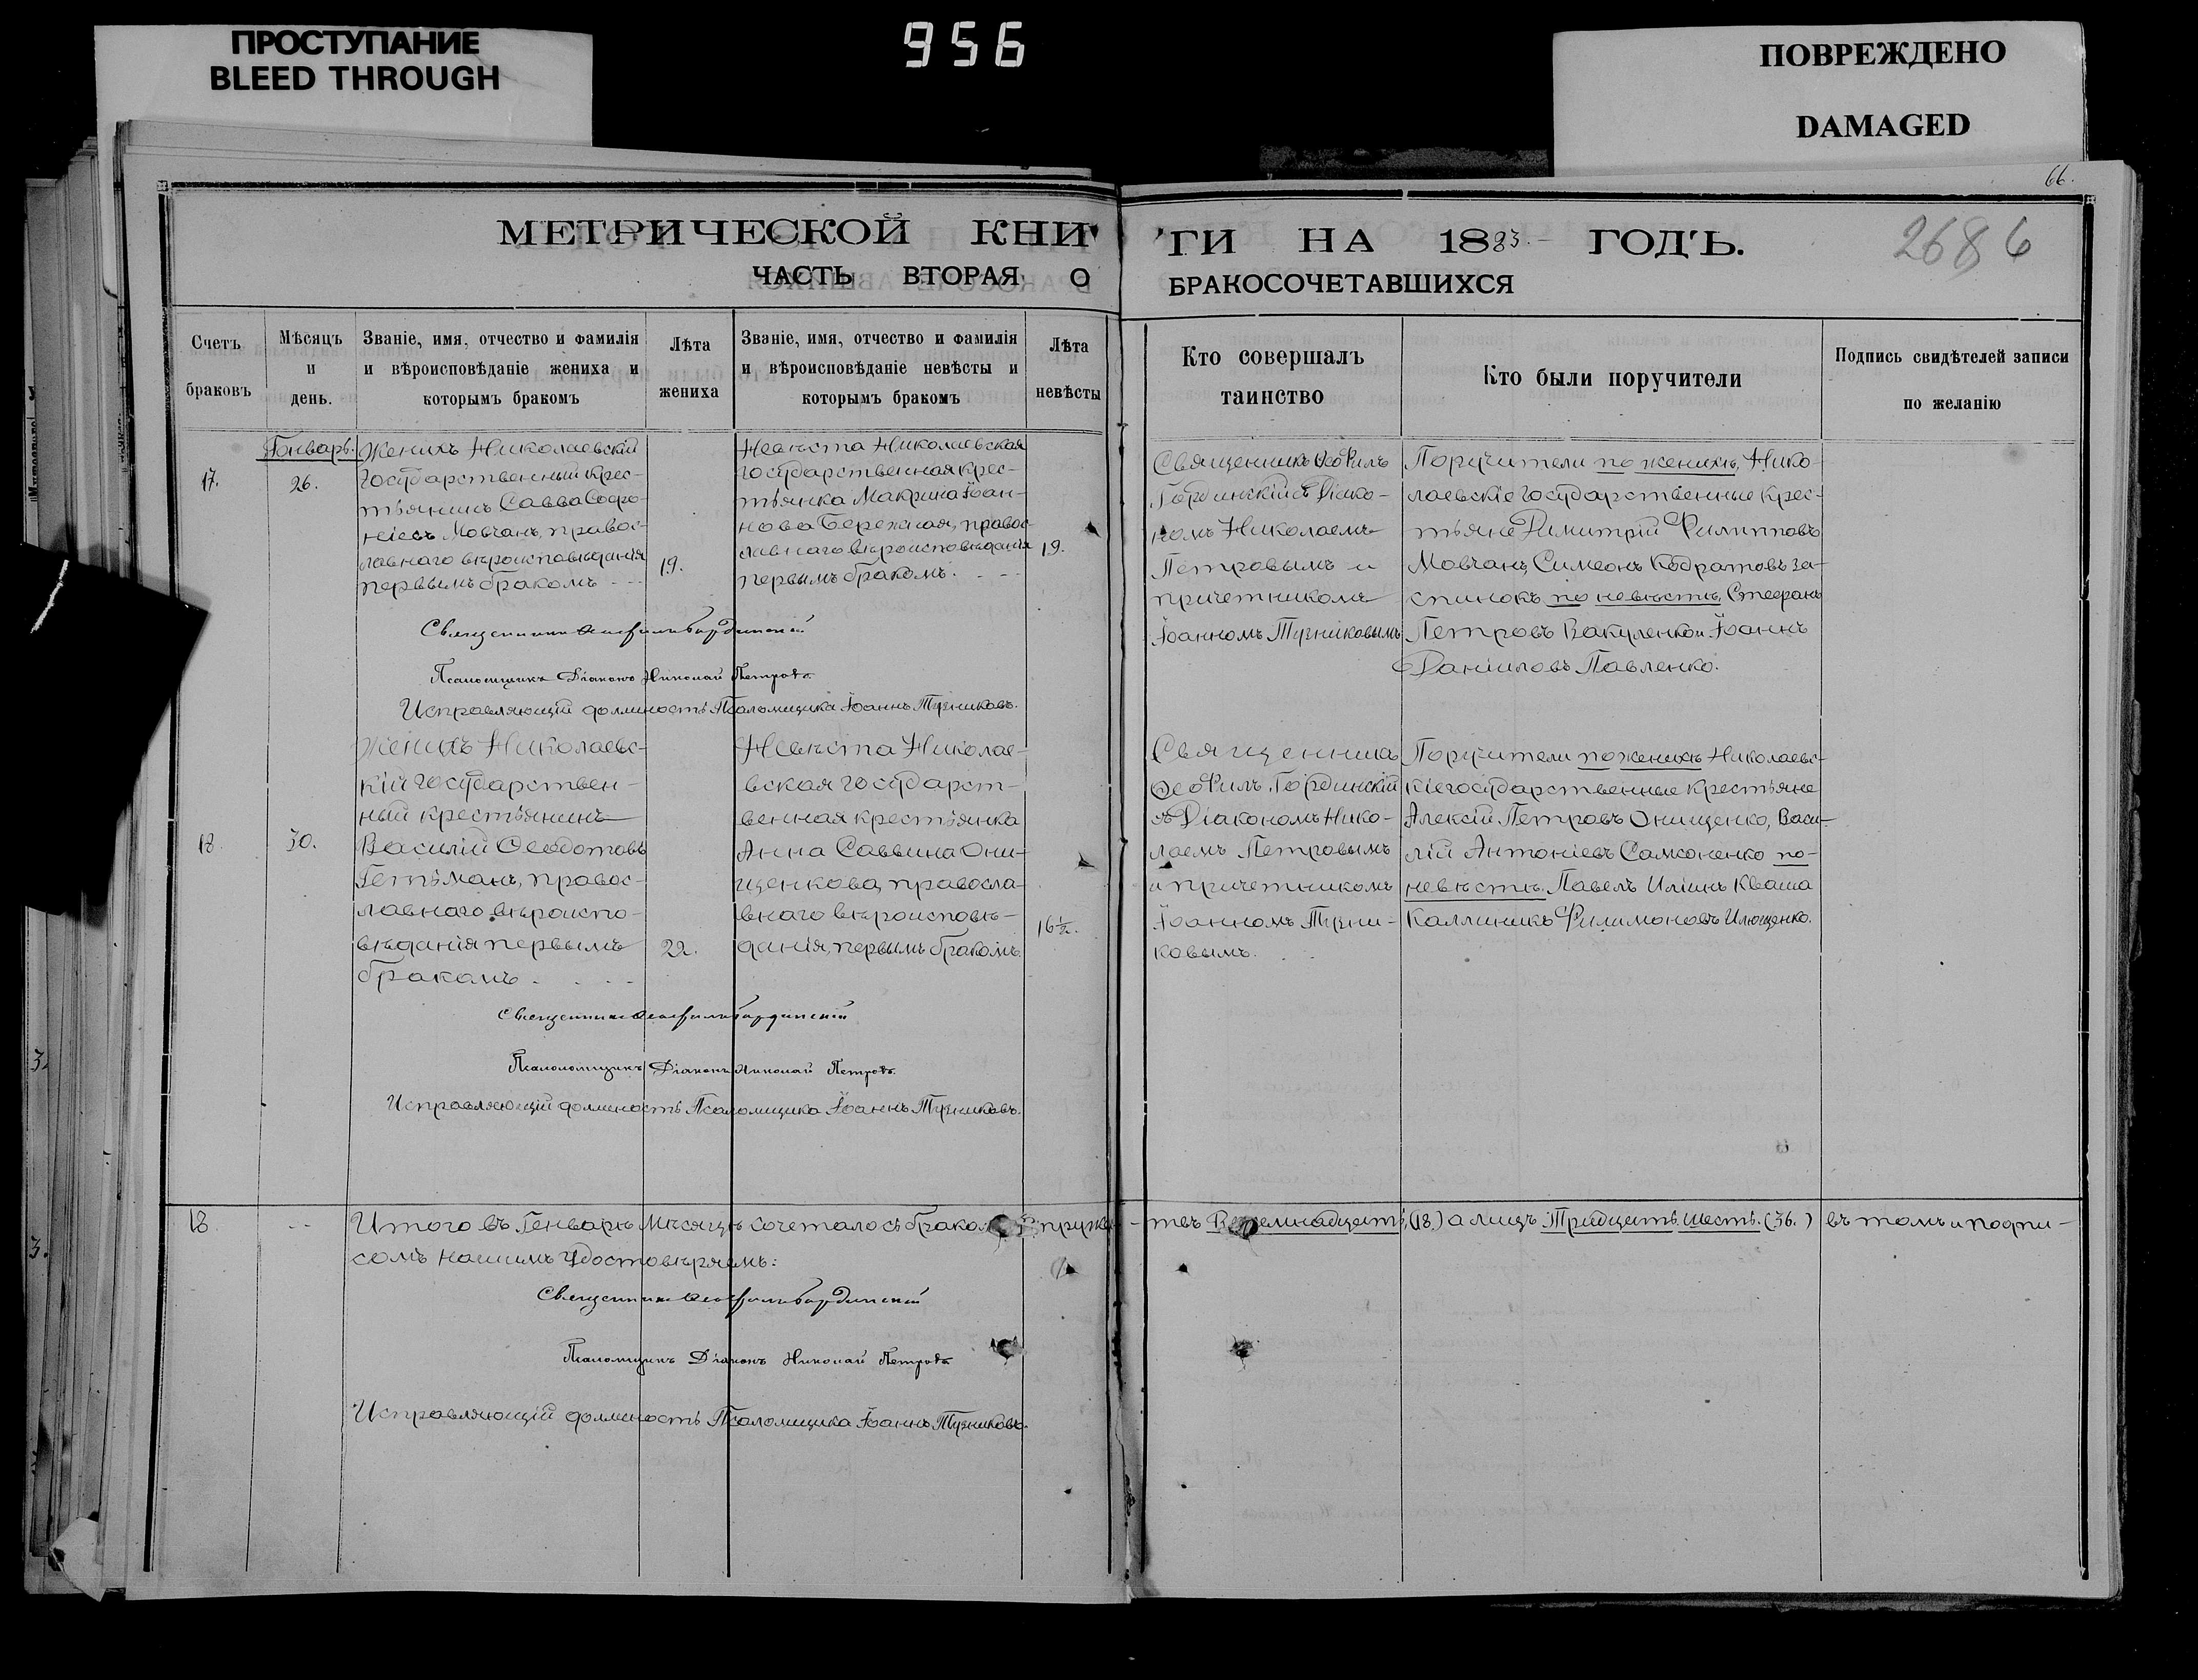 ПРОСТУПАНИЕ
BLEED THROUGH
956
ПОВРЕЖДЕНО
DAMAGED
66.
2686
МЕТРИЧЕСКОЙ КНИ
ГИ НА 1883 ГОДЪ.
ЧАСТЬ ВТОРАЯ О
БРАКОСОЧЕТАВШИХСЯ
Счетъ
браковъ
Мѣсяцъ
и
день.
Званіе, имя, отчество и фамилія
и вѣроисповѣданіе жениха и
которымъ бракомъ
Лѣта
жениха
Званіе, имя, отчество и фамилія
и вѣроисповѣданіе невѣсты и
которымъ бракомъ
Лѣта
невѣсты
Кто совершалъ
таинство
Кто были поручители
Подпись свидѣтелей записи
по желанію
17.
Генварь.
26.
Женихъ Николаевскій
государственный крес-
тьянинъ Савва Софро-
ніевъ Мовчанъ, правос-
лавнаго вѣроисповѣданія
первымъ бракомъ
19.
Невѣста Николаевская
государственная крес-
тьянка Макрина Іоан-
нова Бережная, правос-
лавнаго вѣроисповѣданія
первымъ бракомъ.
19.
Священникъ Ѳеофилъ
Гординскій съ Діако-
номъ Николаемъ
Петровымъ и
причетникомъ
Іоанномъ Тузниковымъ
Поручители по женихѣ, Нико-
лаевскіе государственные крес-
тьяне Димитрій Филипповъ
Мовчанъ, Симеонъ Кодратовъ За-
спинокъ по невѣстѣ, Стефанъ
Петровъ Вакуленко и Іоаннъ
Даніиловъ Павленко.
Священникъ Ѳеофилъ Гординскій
Псаломщикъ Діаконъ Николай Петровъ.
Исправляющій должность Псаломщика Іоаннъ Тузниковъ.
18.
30.
Женихъ Николаевс-
кій государствен-
ный крестьянинъ
Василій Ѳеодотовъ
Гетьманъ, правос-
лавнаго вѣроиспо-
вѣданія первымъ
бракомъ.
22.
Невѣста Николае-
вская государст-
венная крестьянка
Анна Саввина Они-
щенкова, правосла-
внаго вѣроисповѣ-
данія, первымъ бракомъ.
16 ½.
Священникъ
Ѳеофилъ Гординскій
съ Діакономъ Нико-
лаемъ Петровымъ
и причетникомъ
Іоанномъ Тузни-
ковымъ.
Поручители по женихѣ Николаевс-
кіе государственные крестьяне
Алексій Петровъ Онищенко, Васи-
лій Антоніевъ Самсоненко по-
невѣстѣ. Павелъ Иліинъ Кваша
Каллиникъ Филимоновъ Илющенко.
Священникъ Ѳеофилъ Гординскій
Псаломщикъ Діаконъ Николай Петровъ.
Исправляющій должность Псаломщика Іоаннъ Тузниковъ.
18
Итого въ Генварѣ мѣсяцѣ сочеталось бракомъ супруже-
твъ Восемнадцать, (18.) а лицъ Тридцать шесть. (36.) въ томъ и подпи-
сомъ нашимъ удостовѣряемъ:
Священникъ Ѳеофилъ Гординскій
Псаломщикъ Діаконъ Николай Петровъ
Исправляющій должность Псаломщика Іоаннъ Тузниковъ.